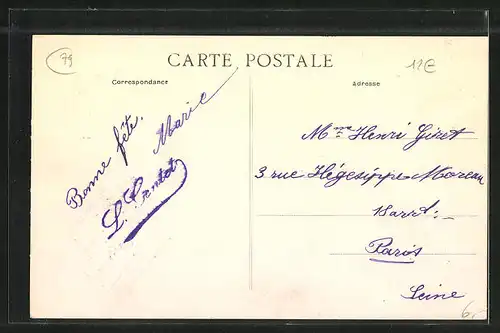 79
12€
CARTE POSTALE
Correspondance
Adresse
Bonne fête. Marie
Mme Henri Giret
3 rue Hégésippe Moreau
Paris
Seine
6,-